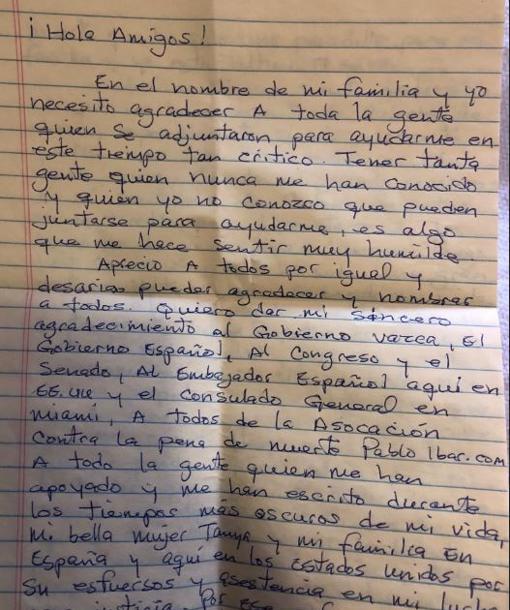 ¡ Hola Amigos!
En el nombre de mi familia y yo
necesito agradecer A toda la gente
quien se adjuntaron para ayudarme en
este tiempo tan critico. Tener tanta
gente quien nunca me han conocido
y quien yo no conozco que pueden
juntarse para ayudarme, es algo
que me hace sentir muy humilde.
Aprecio A todos por igual y
desarias pueder agradecer y nombrar
a todos. Quiero dar mi sincero
agradecimiento al Gobierno vazca, El
Gobierno Español, Al Congreso y el
Senado, Al Embajador Español aquí en
EE.UU y el Consulado General en
Miami, A todos de la Asocación
Contra la pena de muerte Pablo Ibar.com
A todo la gente quien me han
apoyado y me han escrito durante
los tiempos mas oscuros de mi vida,
Mi bella mujer Tanya y mi familia En
España y aquí en los Estados Unidos por
Su esfuersos y asestencia en mi lucha
justicia. Por eso